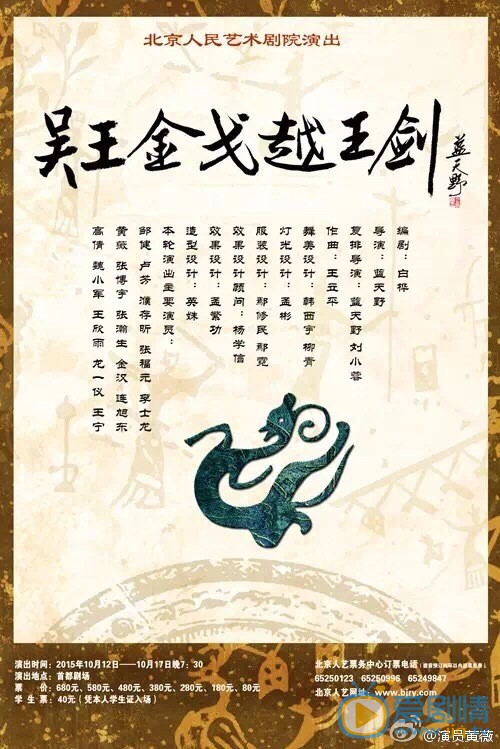 北京人民艺术剧院演出
吴王金戈越王剑
蓝天野
编剧：白桦
导演：蓝天野
复排导演：蓝天野 刘小蓉
作曲：王立平
舞美设计：韩西宇 柳青
灯光设计：孟彬
服装设计：鄢修民 鄢霓
效果设计顾问：杨学信
效果设计：孟繁功
造型设计：英姝
本轮演出主要演员：
邹健 卢芳 濮存昕 张福元 李士龙
黄薇 张博宇 张瀚生 金汉 连旭东
高倩 魏小军 王欣雨 龙一仪 王宁
演出时间：2015年10月12日——10月17日晚7：30
演出地点：首都剧场
票 价：680元、580元、480元、380元、280元、180元、80元
学 生 票：40元（凭本人学生证入场）
北京人艺票务中心订票电话
65250123 65250996 65249847
北京人艺网址：www.bjry.com
爱剧情
@演员黄薇